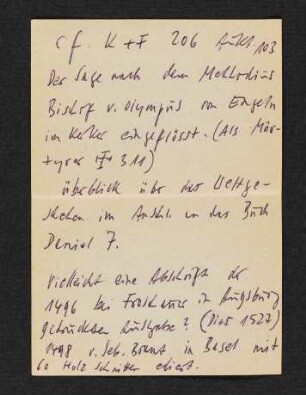 cf. K+F 206 Aukt. 103
Der Sage nach dem Methodius
Bischof v. Olympus von Engeln
im Kerker eingeflösst. (Als Mär-
tyrer † 311)
Überblick über das Weltge-
schehen im Anschl. an das Buch
Daniel 7.
Vielleicht eine Abschrift der
1496 bei Froschauer in Augsburg
gedruckten Ausgabe? (Dies 1527)
1498 v. Seb. Brant in Basel mit
60 Holzschnitten ediert.